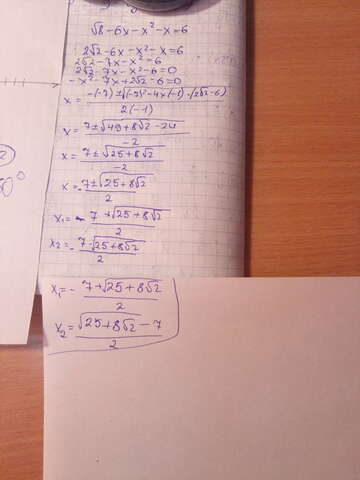 √8-6x-x²-x=6
2√2-6x-x²-x=6
2√2-7x-x²=6
2√2-7x-x²-6=0
-x²-7x+2√2-6=0
x=-(-7)±√(-7)²-4x(-1)·(2√2-6)/2(-1)
x=7±√49+8√2-24/-2
x=7±√25+8√2/-2
x=-7±√25+8√2/2
x₁=-7+√25+8√2/2
x₂=-7-√25+8√2/2
x₁=-7+√25+8√2/2
x₂=√25+8√2-7/2